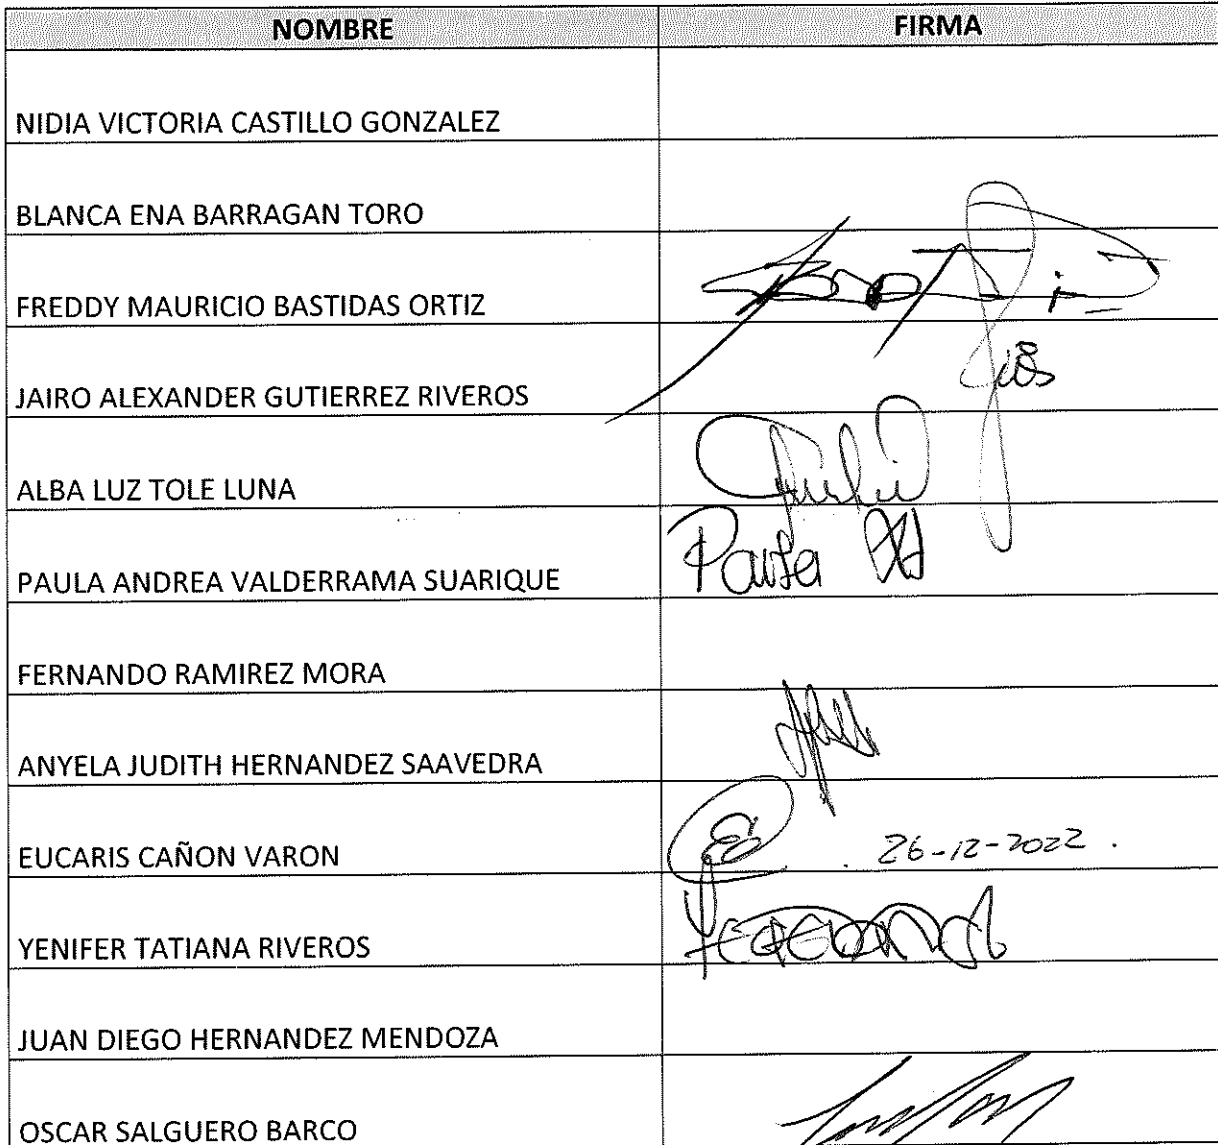 NOMBRE FIRMA
NIDIA VICTORIA CASTILLO GONZALEZ
BLANCA ENA BARRAGAN TORO
FREDDY MAURICIO BASTIDAS ORTIZ
JAIRO ALEXANDER GUTIERREZ RIVEROS
ALBA LUZ TOLE LUNA
PAULA ANDREA VALDERRAMA SUARIQUE Paula
FERNANDO RAMIREZ MORA
ANYELA JUDITH HERNANDEZ SAAVEDRA
EUCARIS CAÑON VARON . 26-12-2022 .
YENIFER TATIANA RIVEROS
JUAN DIEGO HERNANDEZ MENDOZA
OSCAR SALGUERO BARCO